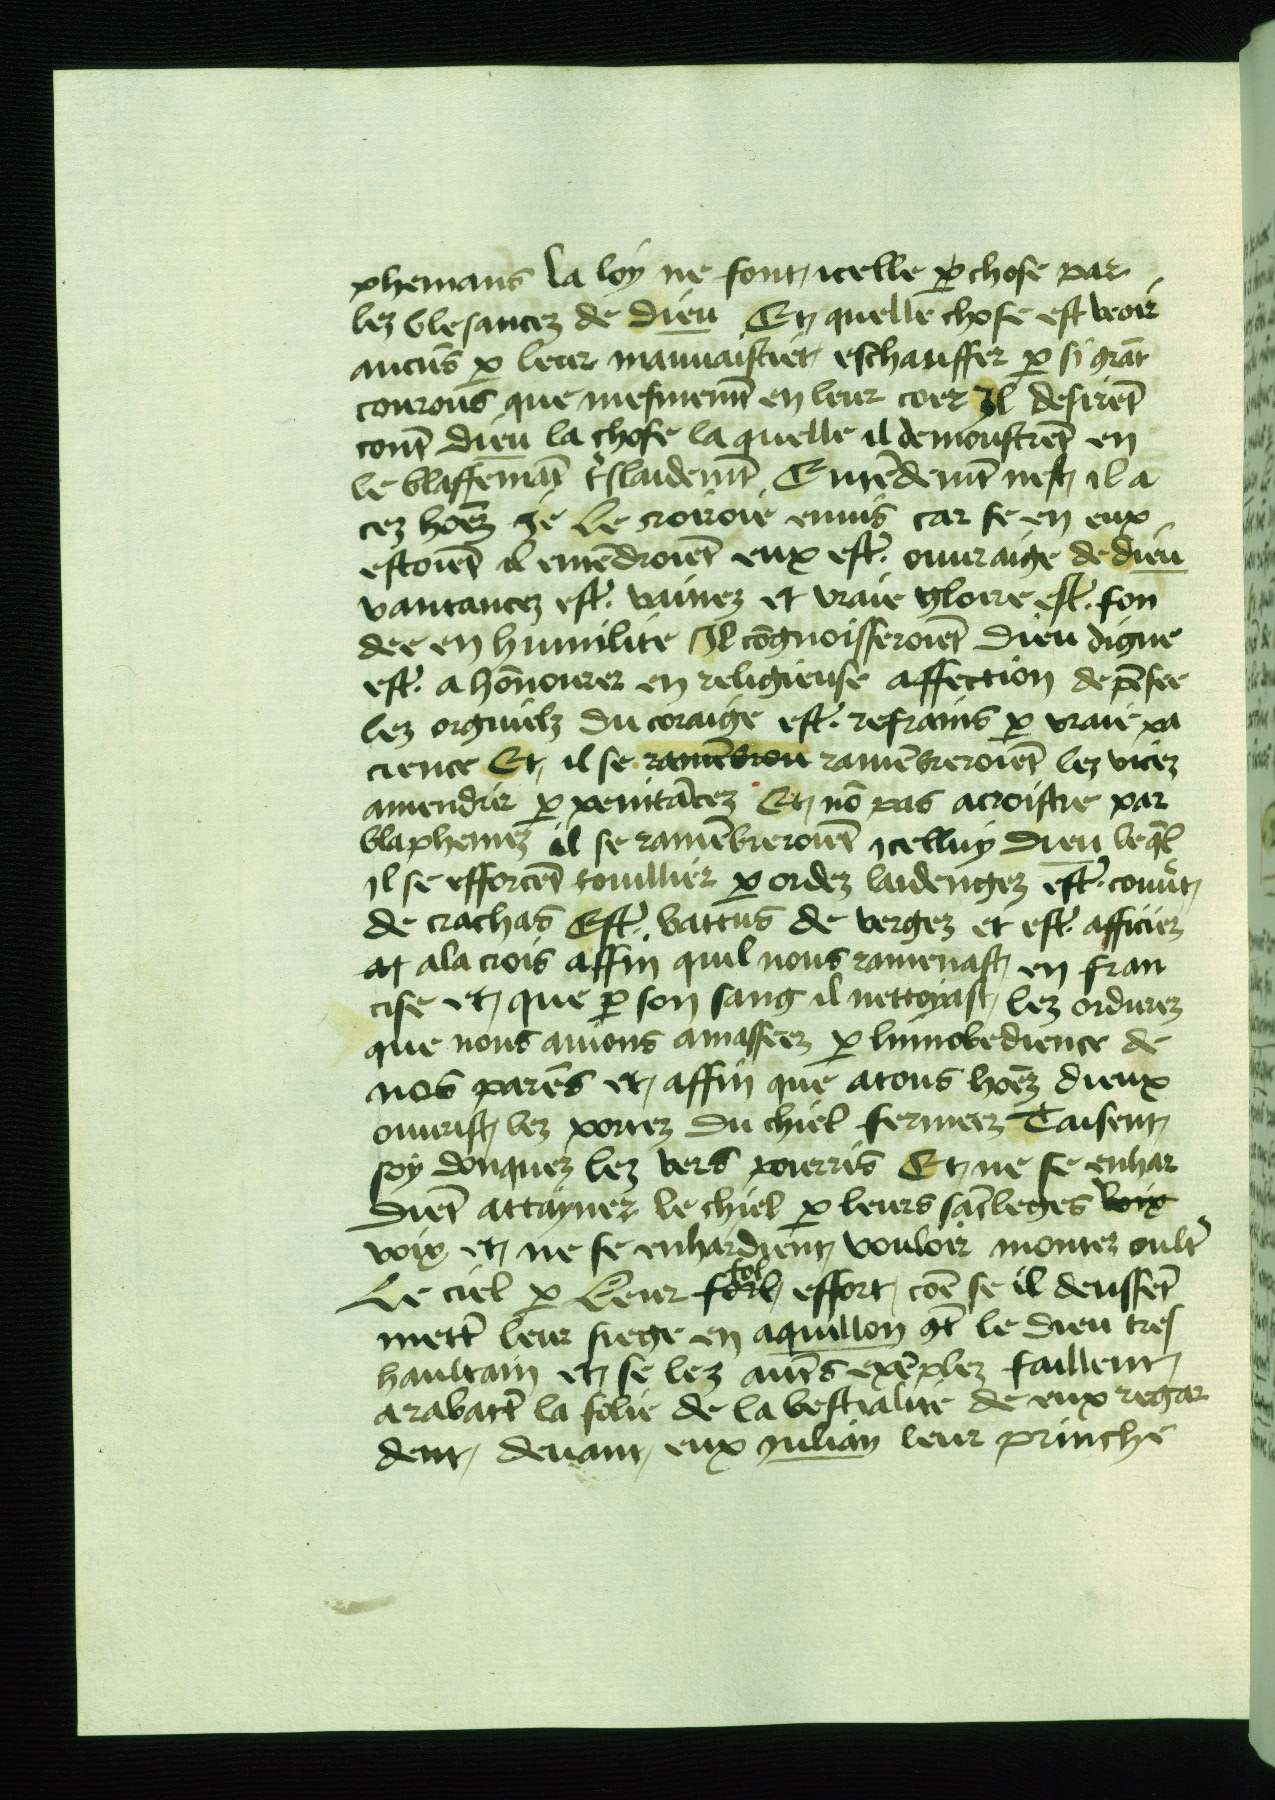 phemans La loy ne font icelle p̱ chose par
lez blesancez de dieu En quelle chose est veoir
aucūs p̱ leur mauuaistiet eschauffer p̱ si grāt
courous que mesmemt̄ en leur coer Il desirēt
cont̄ dieu la chose la quelle il demonstrēt en
le blaffemāt t̓slaidemt̄ Entēdemt̄ nest il a
cez hoēz ge Le croiroie enuis car se en eux
estoiēt il entēdroiēt eux est. ouuraige de dieu
vantancez est. vainez et vraie gloire est. fon
dee en humilite Il cōgnoisseroiēt Dieu digne
est. a hōnourer en religieuse affection de pēsee
lez orguielz du coraige est. refrains p̱ vraie pa
cience Et il se ramēbrou ramēbreroiēt lez vicez
amendrir p̱ penitācez Et nō pas acroistre par
blaphemez il se ramēbreroiēt icelluy dieu leq̄l
il se efforcēt touillier p̱ ordez laidengez est. couūt
de crachas Est. battus de vergez et est. afficiez
at ala crois affin quil nous ramenast en fran
cise et que p̱ son sang il nettoyast lez ordurez
que nous auions amasseez p̱ linnobedience de
nos parēs et affin que atous hoēz dieux
ouurist lez portez du chiel fermeez Taisent
soy donquez lez vers pourris Et ne se enhar
diēt attayner le chiel p̱ leurs sac̄leges voix
voix et ne se enhardient vouloir montez oult̓
Le ciel p̱ Leur forl fol effort coē se il deussēt
mett̓ leur siege en aquillon 9t̄ le dieu tres
haultain et se lez aut̄s exēplez faillent
a rabatr̄ la folie de la bestialite de eux regar
dent deuant eux julian leur prinche